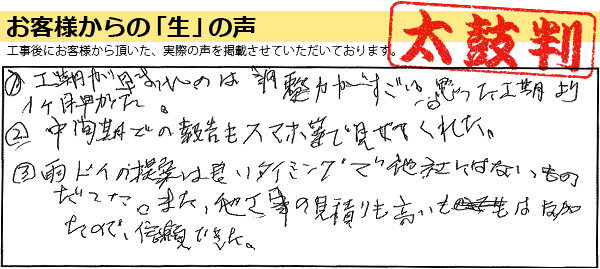 お客様からの「生」の声
太鼓判
工事後にお客様から頂いた、実際の声を掲載させていただいております。
① 工期が早まったのは調整力がすごい。思った工期より
1ヶ月早かった。
② 中間期での報告もスマホ等で見せてくれた。
③ 雨ドイの提案は良いタイミングで他社にはないもの
だった。また、他工事の見積りも高いものはなかっ
たので、信頼できた。